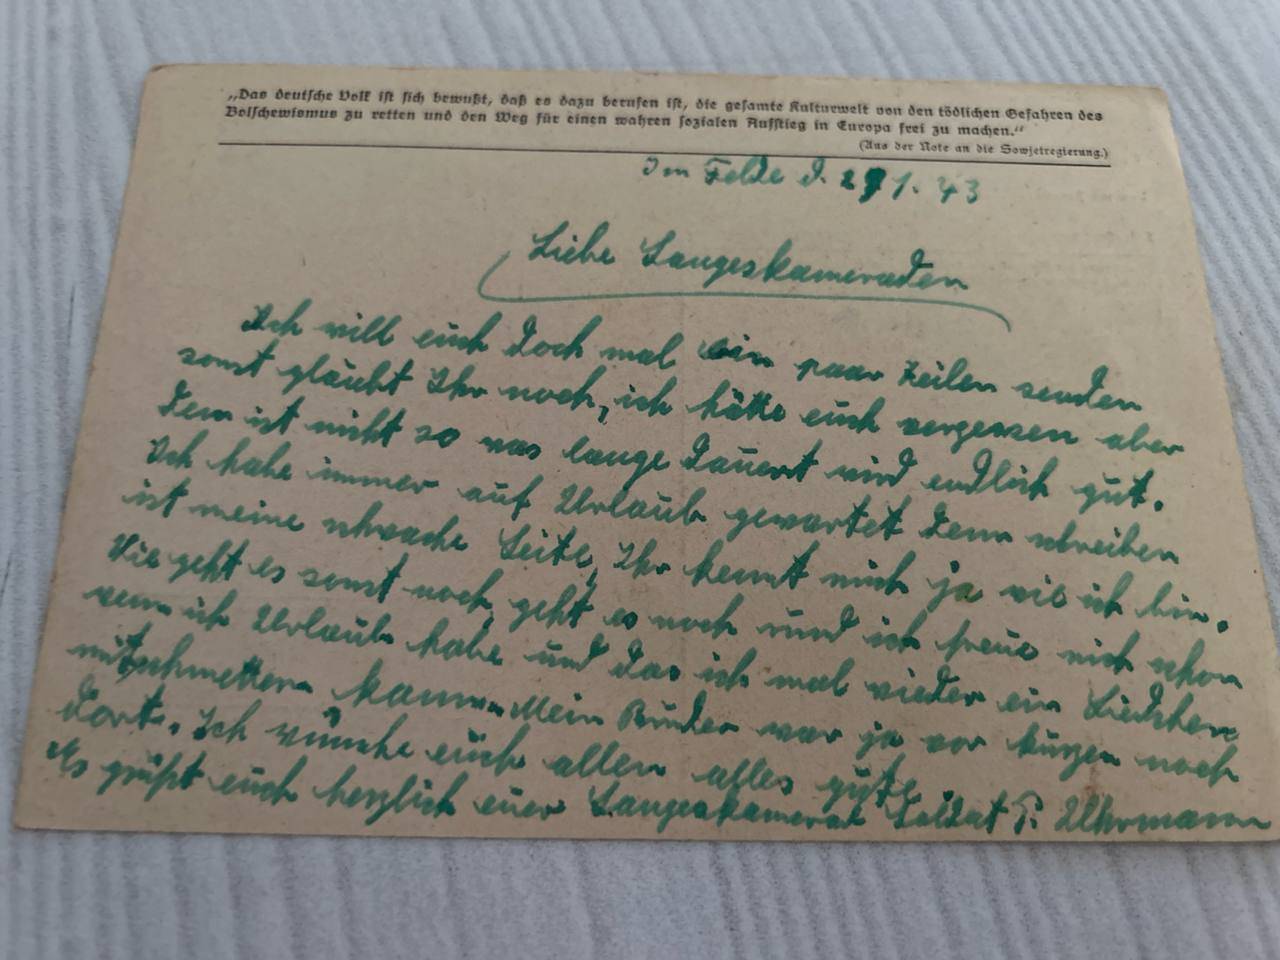 „Das deutsche Volk ist sich bewußt, daß es dazu berufen ist, die gesamte Kulturwelt von den tödlichen Gefahren des
Bolschewismus zu retten und den Weg für einen wahren sozialen Aufstieg in Europa frei zu machen.“
(Aus der Note an die Sowjetregierung.)
Im Felde d. 1. 43
Liebe Sangeskameraden
Ich will euch doch mal ein paar Zeilen senden
sonst glaubt Ihr noch, ich hätte euch vergessen aber
dem ist nicht so was lange dauert wird endlich gut.
Ich habe immer auf Urlaub gewartet denn schreiben
ist meine schwache Seite, Ihr kennt mich ja wie ich bin.
Wie geht es sonst noch, geht es noch rund ich freue mich schon
wenn ich Urlaub habe und das ich mal wieder ein Liedchen
mitschmettern kann. Mein Bruder war ja vor kurzen noch
dort. Ich wünsche euch allen alles gute
Es grüßt euch herzlich euer Sangeskamerad Soldat P. Uhrmann